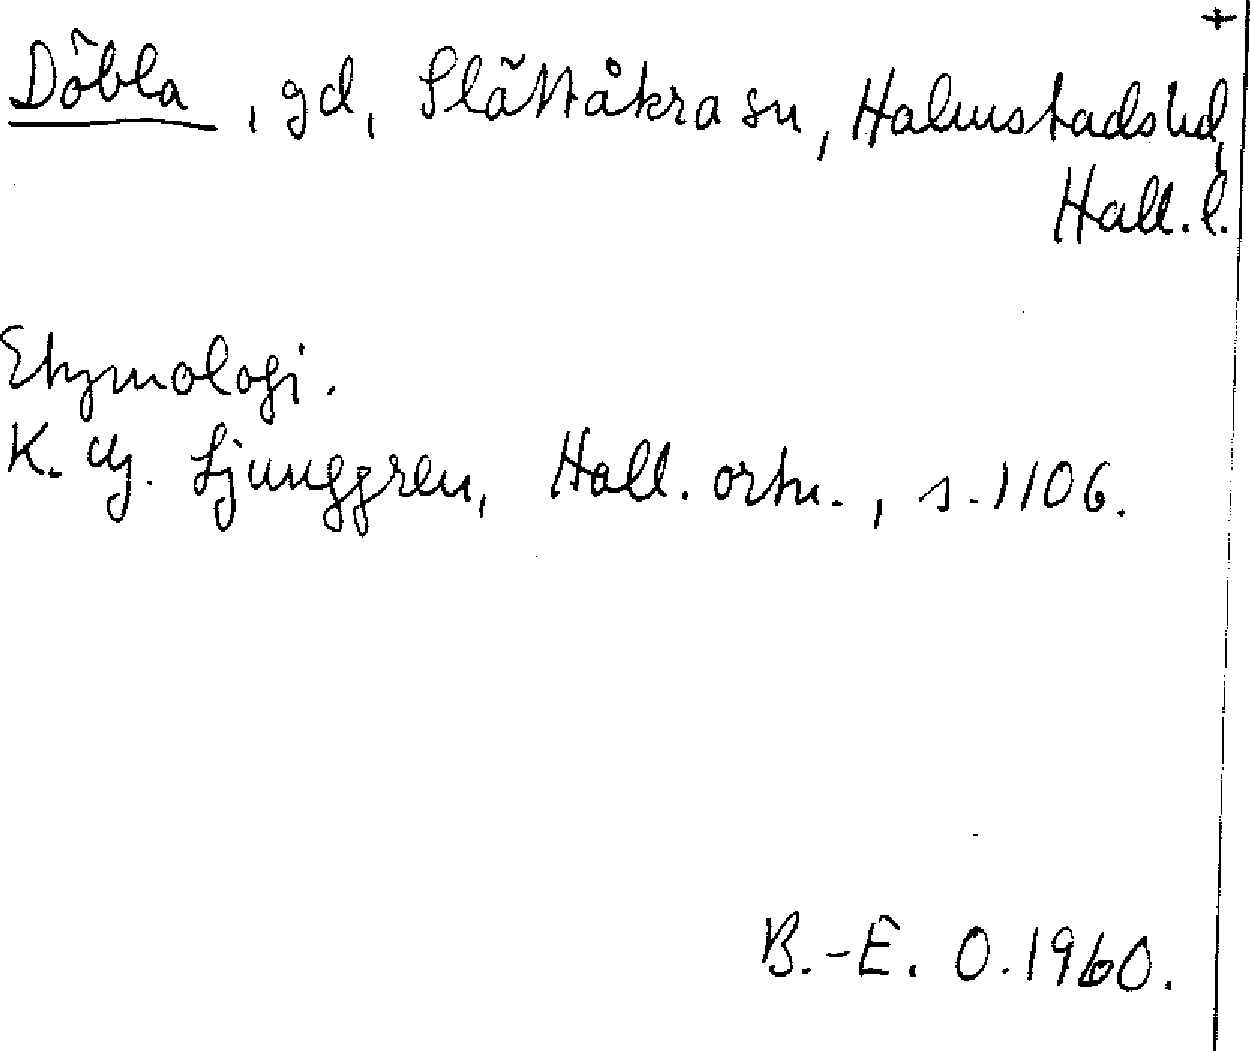 +
Döbla, gd, Slättåkra sn, Halmstads hd,
Hall. l.
Etymologi.
K. G. Ljunggren, Hall. ortn., s. 1106.
B.-E. O. 1960.